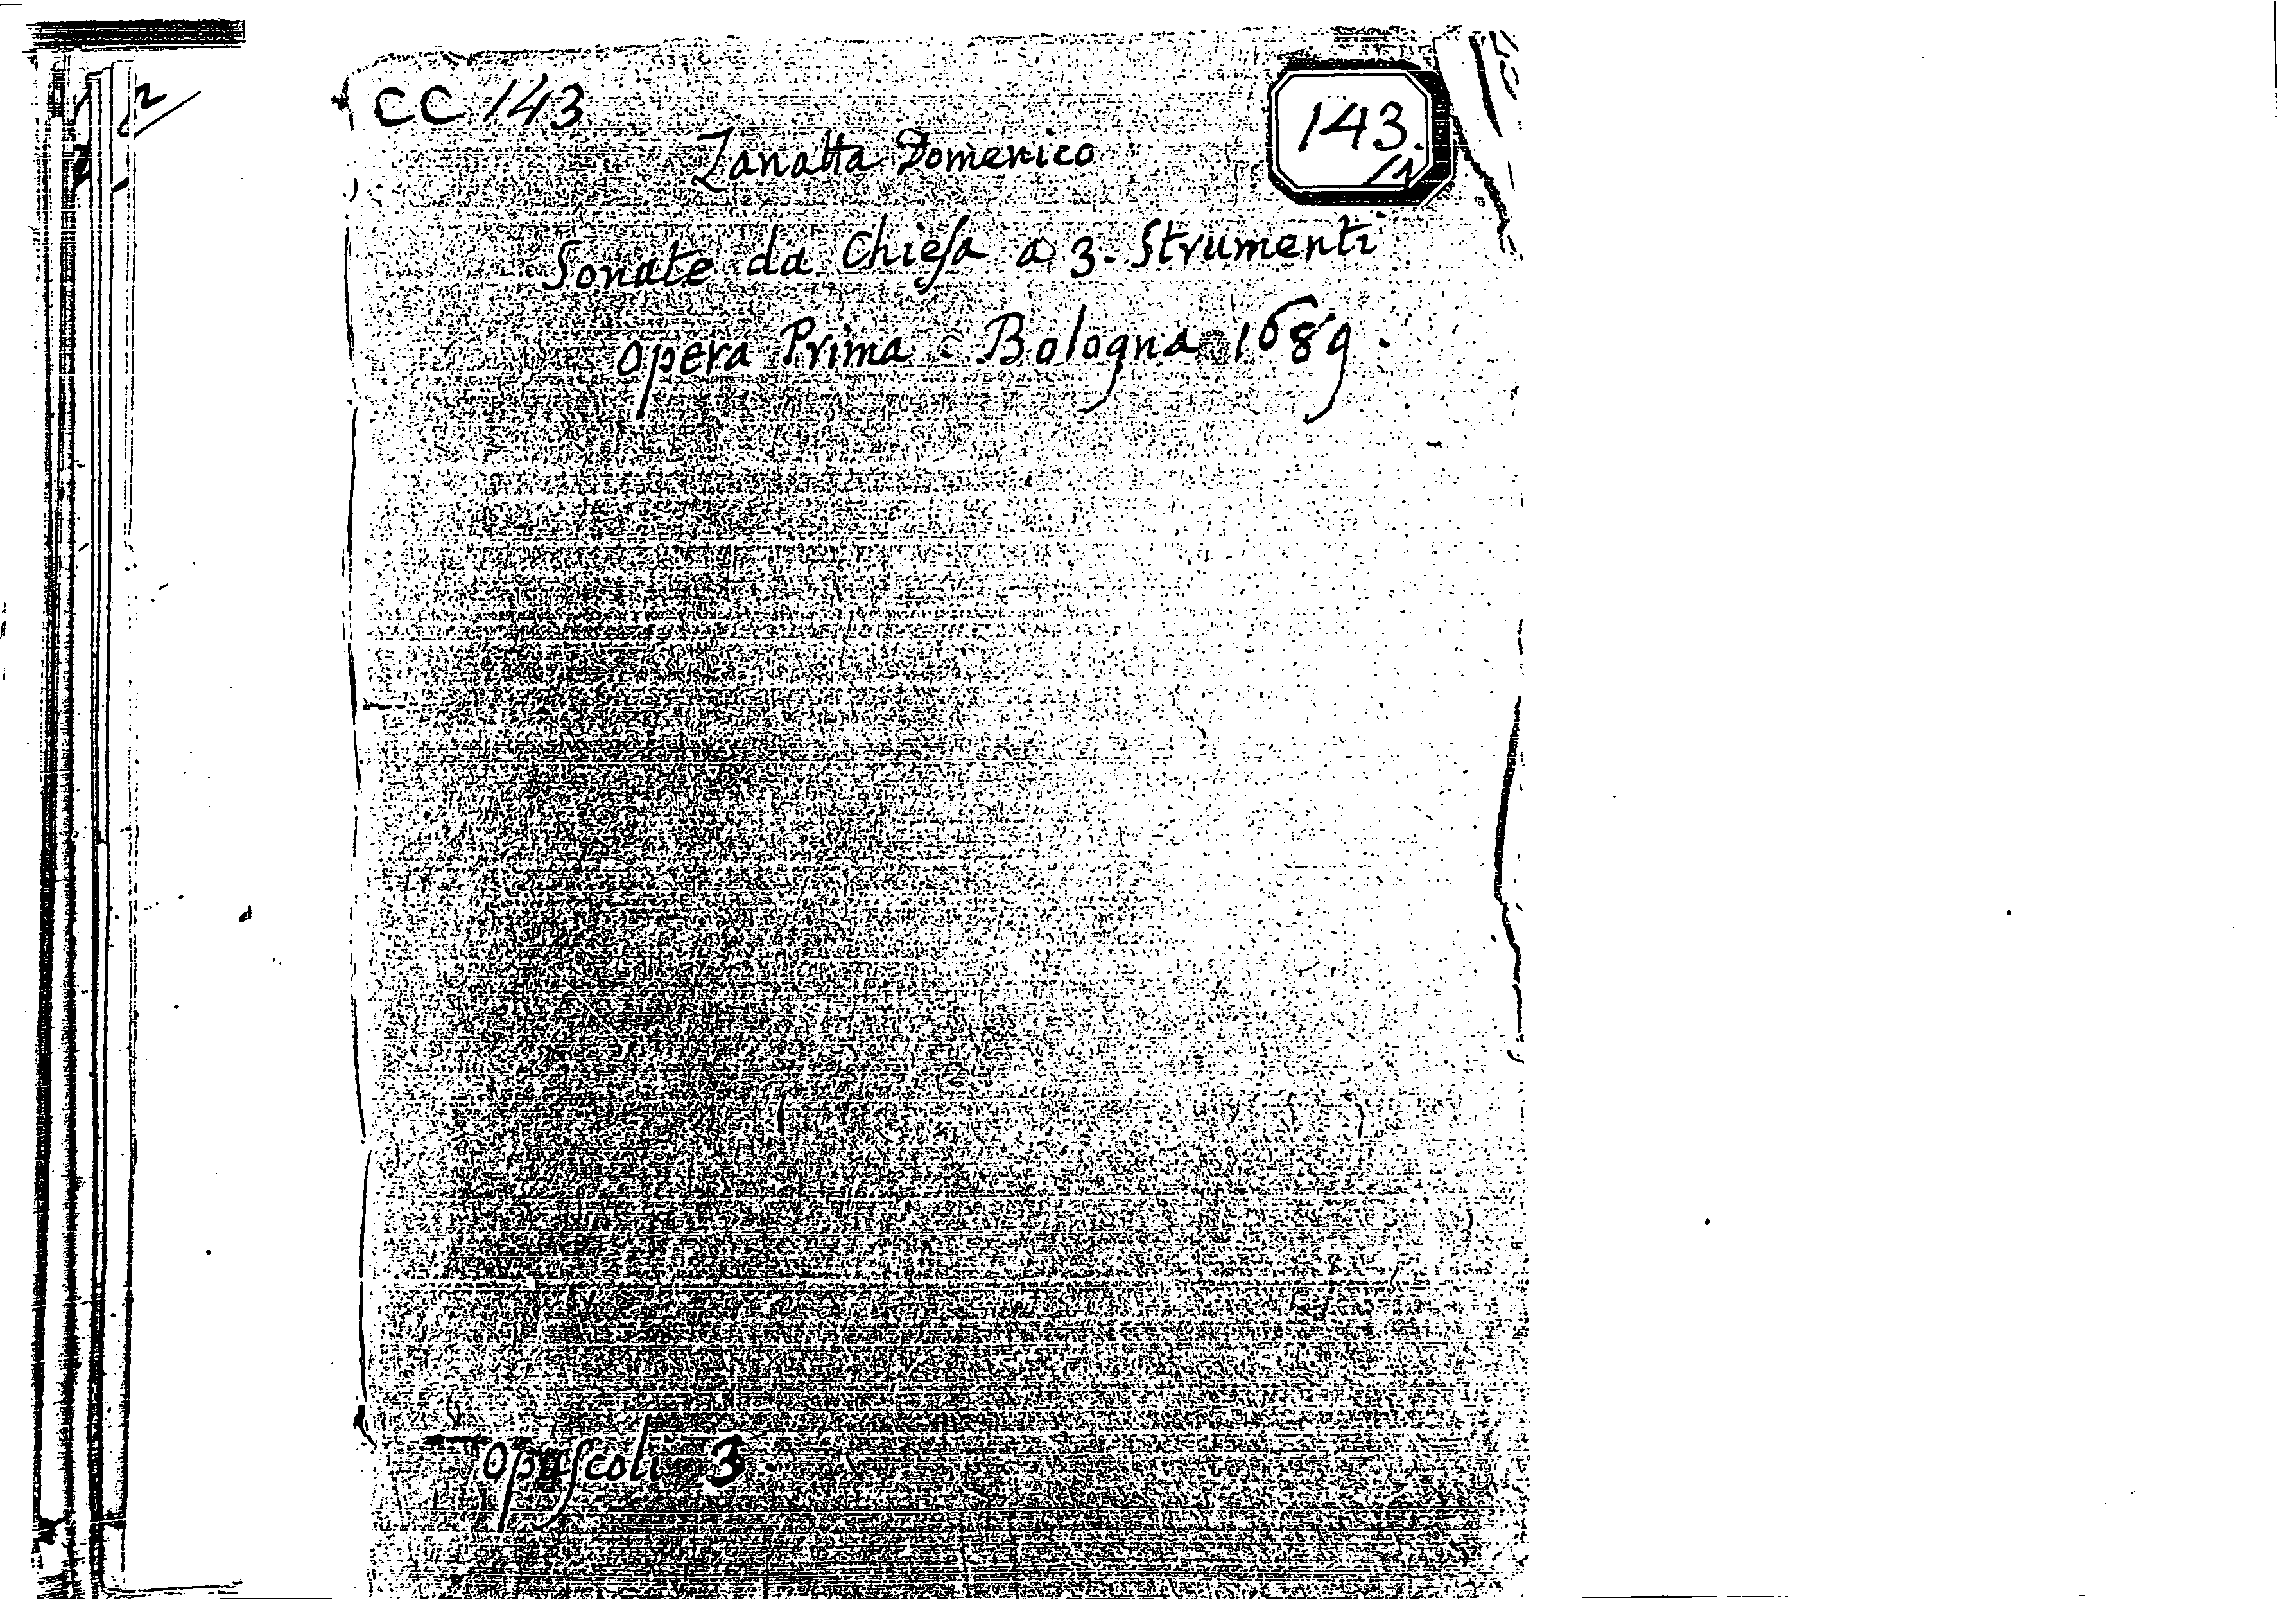 CC 143
143.
/1
Zanatta Domenico
Sonate da Chieſa a 3. Strumenti
Opera Prima Bologna 1689.
Opuſcoli 3.